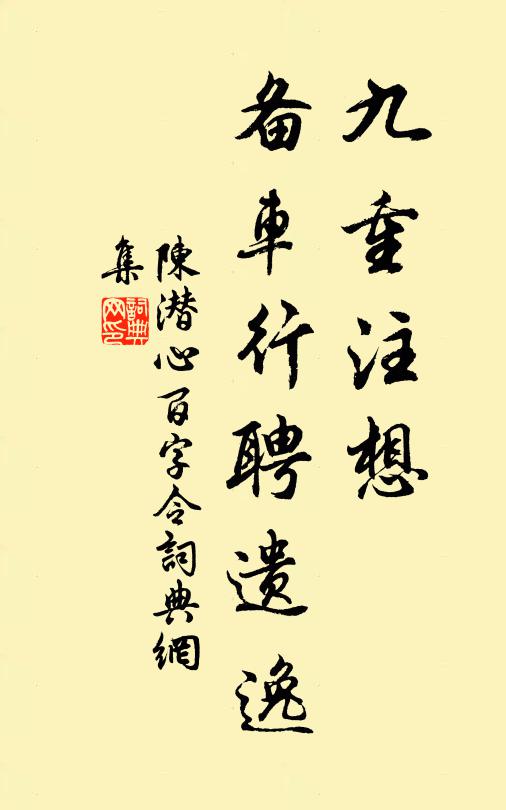 九重注想
备車行聘遗逸
陳潜心百字令詞典網
集
詞典網印